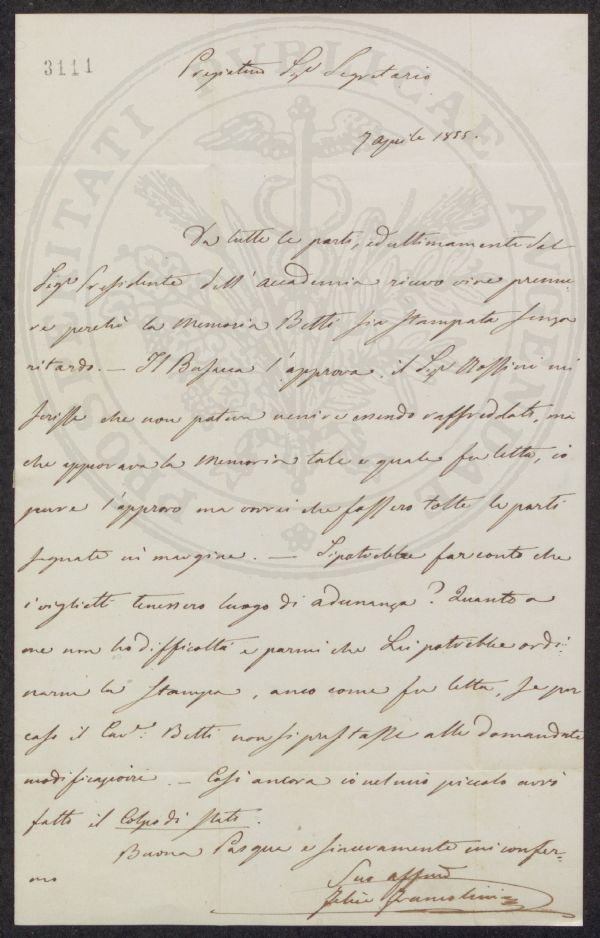 3111
Pregiatmo Sigr Segretario
7 aprile 1855.
Da tutte le parti, ed ultimamente dal
Sigr Presidente dell' Accademia ricevo vive premu-
re perchè la Memoria Betti sia stampata senza
ritardo. — Il Busacca l'approva, il Sigr mi
scrisse che non poteva venire essendo raffreddato, ma
che approvava la Memoria tale e quale fu letta, io
pure l'approvo ma vorrei che fossero tolte le parti
segnate in margine. — Si potrebbe far conto che
i viglietti tenessero luogo di adunanza? Quanto a
me non ho difficoltà e parmi che Lei potrebbe ordi-
narne la stampa, anco come fu letta, se per
caso il Cavr. Betti non si prestasse alle domandate
modificazioni. — Così ancora io nel mio piccolo avrò
fatto il Colpo di Stato.
Buona Pasqua e sinceramente mi confer-
mo
Suo affmo
Felice Francolini
PROSPERITATI PUBLICAE AUGENDAE